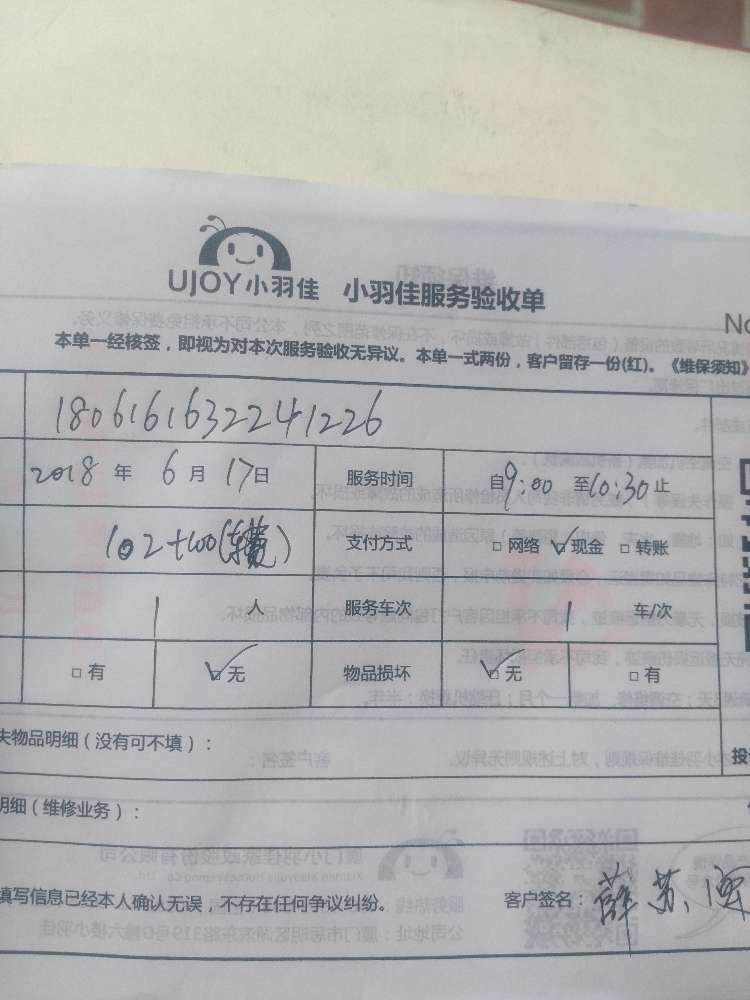 UJOY小羽佳 小羽佳服务验收单
No
本单一经核签，即视为对本次服务验收无异议。本单一式两份，客户留存一份(红)。《维保须知》
1806161632241226
2018 年 6 月 17 日 服务时间 自9:00 至10:30止
102+100( 支付方式 □ 网络 ☑ 现金 □ 转账
1 人 服务车次 1 车/次
□ 有 ☑ 无 物品损坏 ☑ 无 □ 有
失物品明细（没有可不填）：
投
明细（维修业务）：
填写信息已经本人确认无误，不存在任何争议纠纷。 客户签名：薛苏